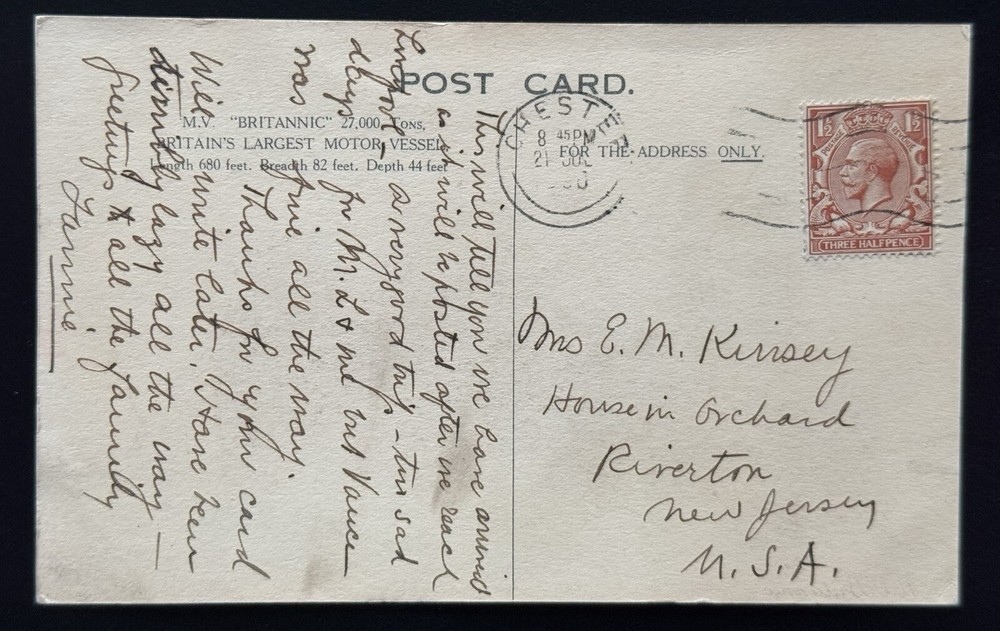 POST CARD.
M.V. "BRITANNIC" 27,000 Tons,
BRITAIN'S LARGEST MOTOR VESSEL
Length 680 feet. Breadth 82 feet. Depth 44 feet
FOR THE ADDRESS ONLY.
CHESTER
8 45 PM
21 JUL
1½ 1½
THREE HALFPENCE
This will tell you we have arrived
as it will be posted after we reach
a very good trip - two sad
days for M. L & me but Vance
was fine all the way.
Thanks for your card
Will write later. Have been
lazy all the way —
Greetings to all the family
Fannie
Mrs E. M. Kinsey
House in Orchard
Riverton
New Jersey
U. S. A.